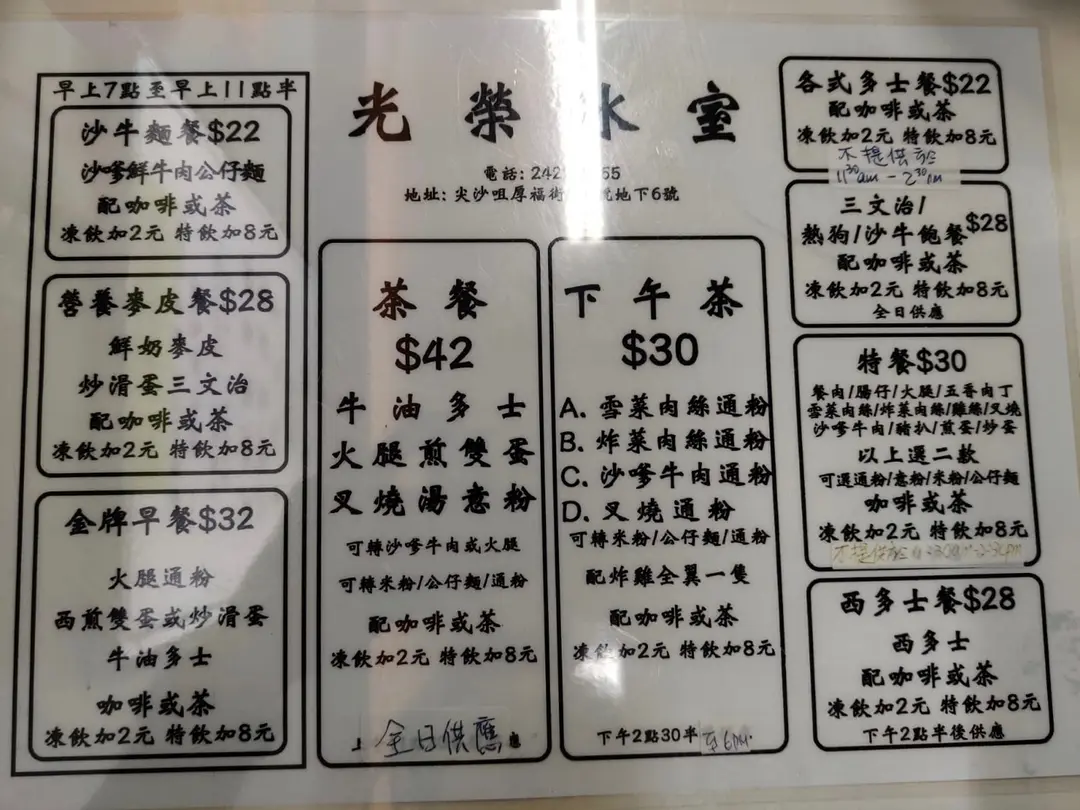 早上7點至早上11點半
沙牛麵餐$22
沙嗲鮮牛肉公仔麵
配咖啡或茶
凍飲加2元 特飲加8元
營養麥皮餐$28
鮮奶麥皮
炒滑蛋三文治
配咖啡或茶
凍飲加2元 特飲加8元
金牌早餐$32
火腿通粉
西煎雙蛋或炒滑蛋
牛油多士
咖啡或茶
凍飲加2元 特飲加8元
光榮冰室
電話: 242 55
地址: 尖沙咀厚福街 號地下6號
茶餐
$42
牛油多士
火腿煎雙蛋
叉燒湯意粉
可轉沙嗲牛肉或火腿
可轉米粉/公仔麵/通粉
配咖啡或茶
凍飲加2元 特飲加8元
全日供應
下午茶
$30
A. 雪菜肉絲通粉
B. 炸菜肉絲通粉
C. 沙嗲牛肉通粉
D. 叉燒通粉
可轉米粉/公仔麵/通粉
配炸雞全翼一隻
配咖啡或茶
凍飲加2元 特飲加8元
下午2點30半至6PM.
各式多士餐$22
配咖啡或茶
凍飲加2元 特飲加8元
不提供於
11³⁰am - 2³⁰pm
三文治/
熱狗/沙牛飽餐$28
配咖啡或茶
凍飲加2元 特飲加8元
全日供應
特餐$30
餐肉/腸仔/火腿/五香肉丁
雪菜肉絲/炸菜肉絲/雞絲/叉燒
沙嗲牛肉/豬扒/煎蛋/炒蛋
以上選二款
可選通粉/意粉/米粉/公仔麵
咖啡或茶
凍飲加2元 特飲加8元
不提供於
西多士餐$28
西多士
配咖啡或茶
凍飲加2元 特飲加8元
下午2點半後供應